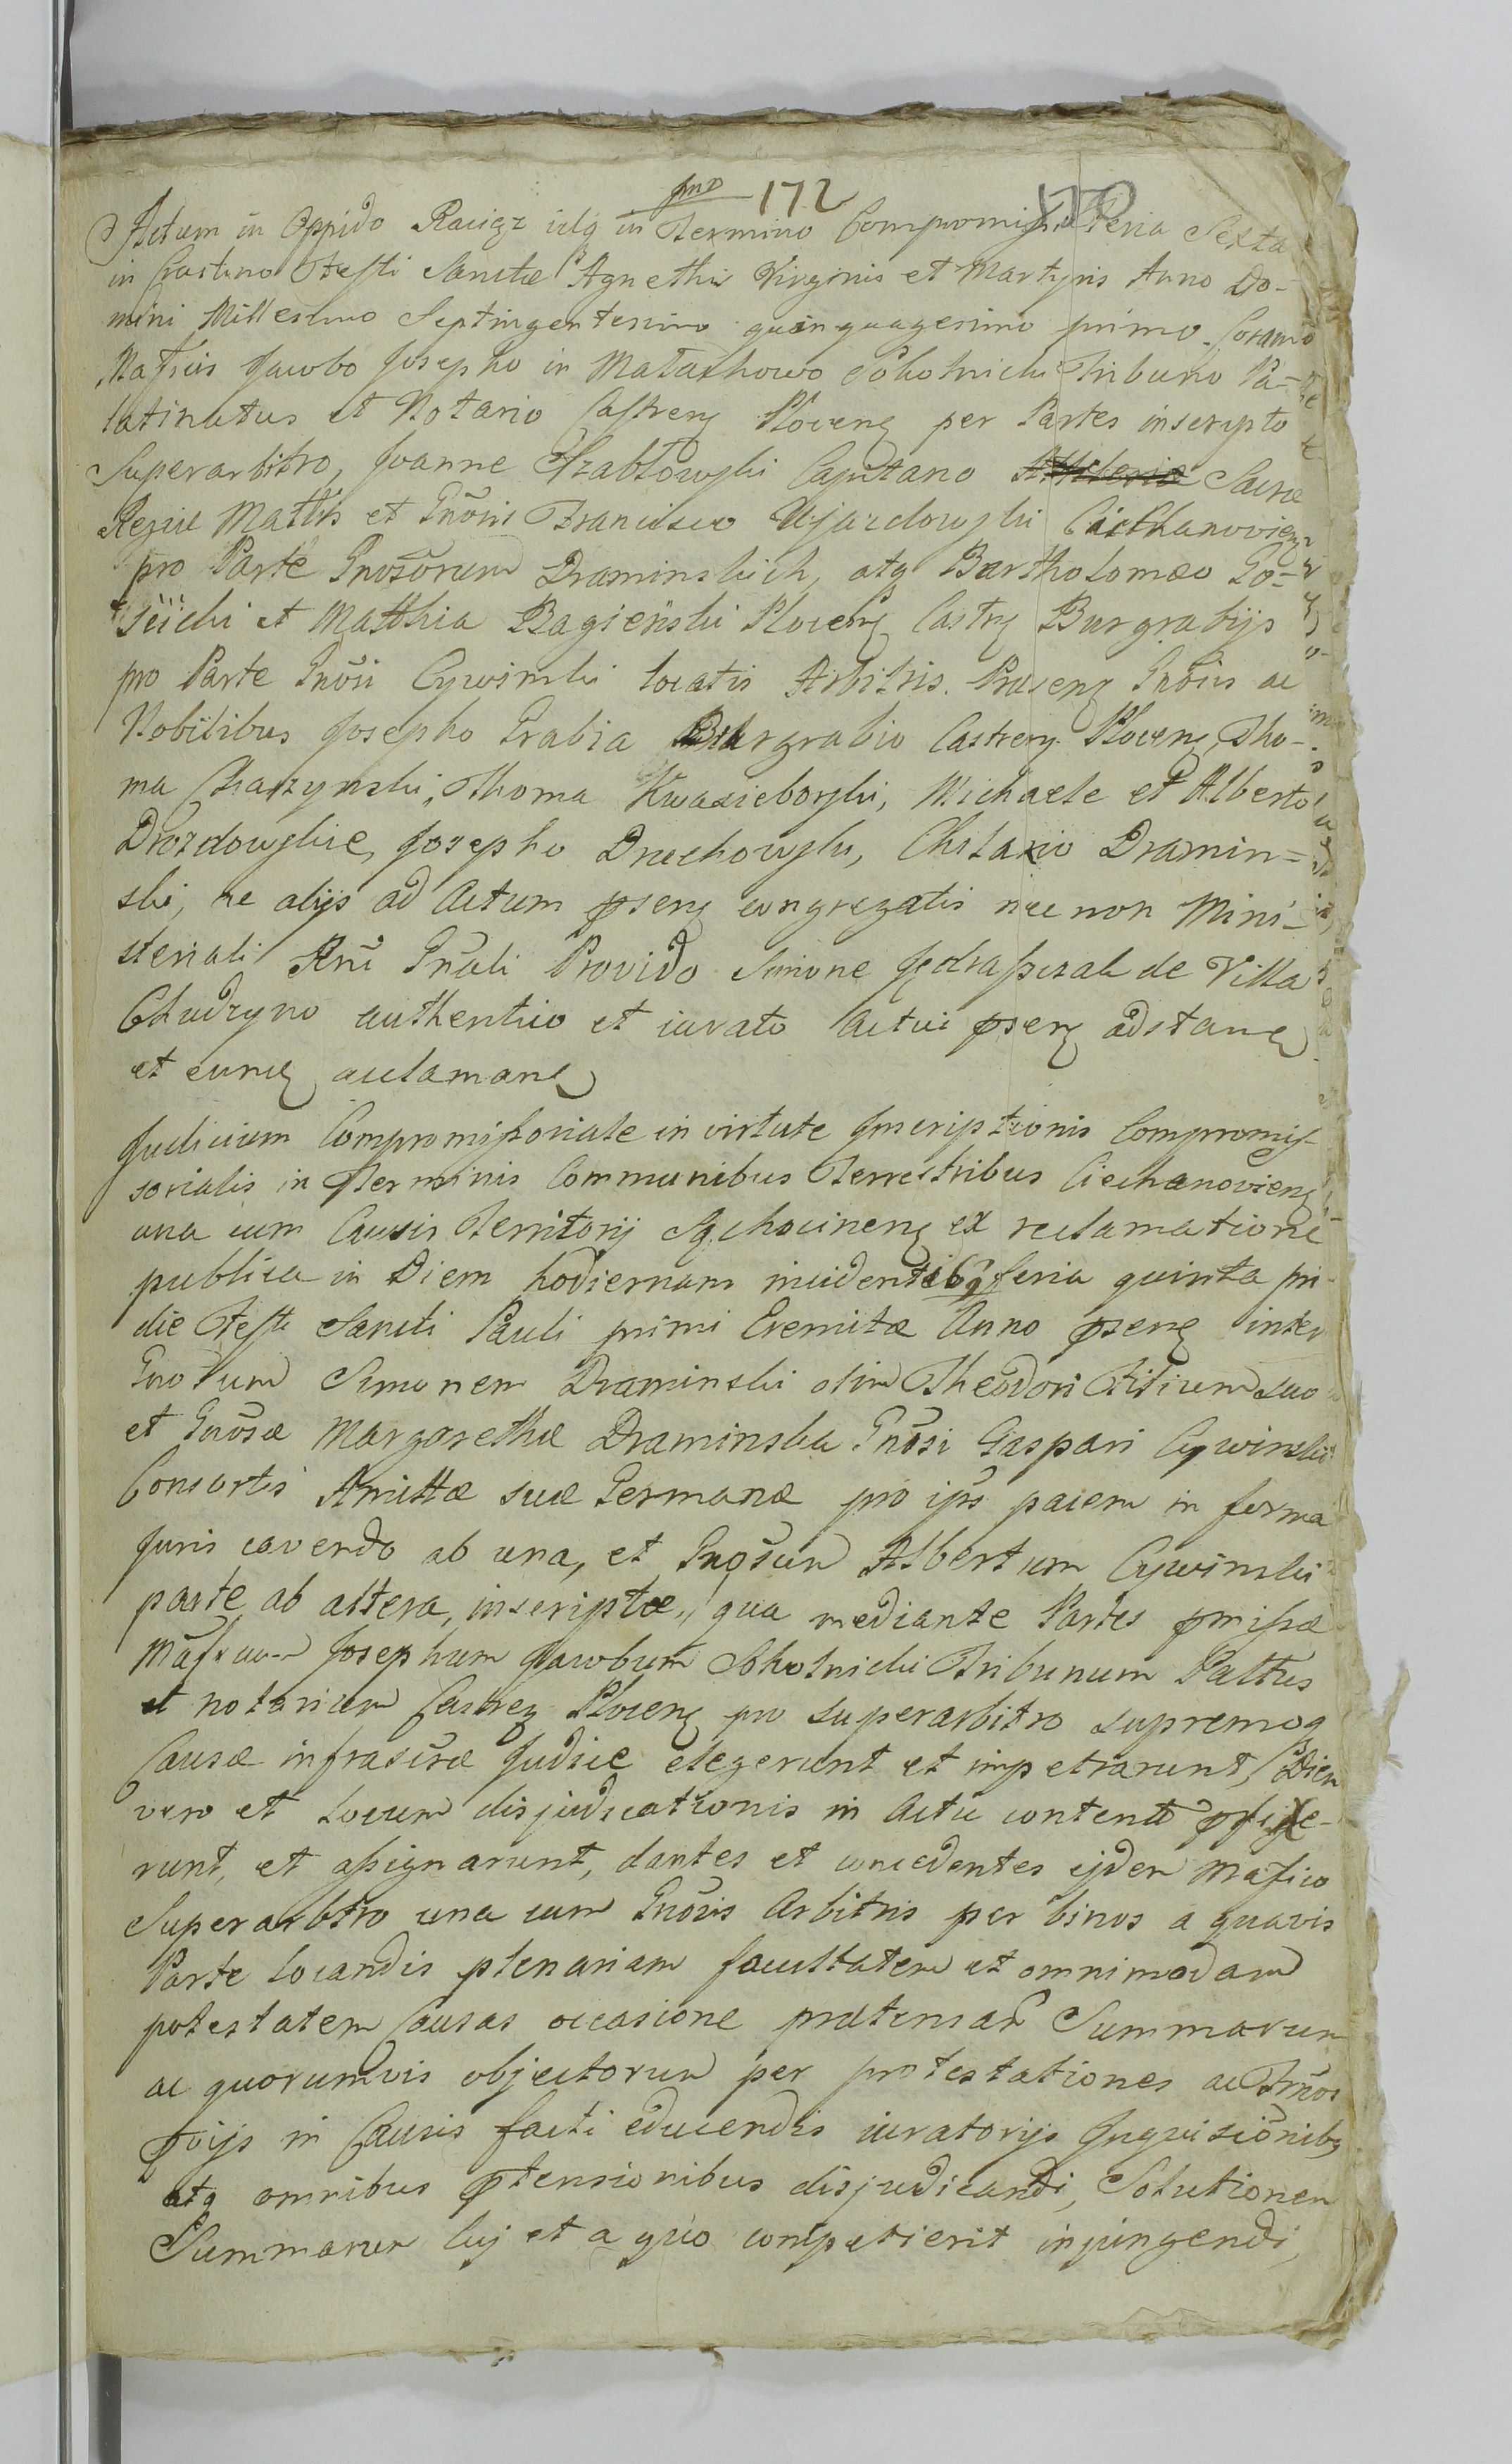 pmo 172 170
Actum in Oppido Raciąz in Termino Compromissi Feria Sexta
in Crastino Festi Sanctæ Agnethis Virginis et Martyris Anno Do-
mini Millesimo Septingentesimo quinquagesimo primo. Coram
Jacobo Josepho in Matachowo Sokolnicki Tribuno Pa-
latinatus et Notario Castren Plocen per Partes inscripto
Superarbitro, Joanne Szabłowski Capitano Sacræ
Regiæ Mattis et Gnosis Francisco Ujazdowski Ciechanovien
pro Parte Gnosorum Draminskich, atq Bartholomæo Go-
sicki et Matthia Bagieński Plocen Castr Burgrabijs
pro Parte Gnosi Cywinski locatis Arbitris. Præsen Gnosis ac
Nobilibus Josepho Grabia Burgrabio Castren Plocen, Tho-
ma Charzynski, Thoma Kwasieborski, Michaele et Alberto
Drozdowskie, Josepho Druchowski, Chilario Dramin=
ski, ac alijs ad Actum psen congregatis nec non Mini-
steriali Rni Gnali Provido Simone de Villa
Chudzyno authentico et iurato Actui psen adstan
et eund aclaman
Judicium Compromissoriale in virtute Inscriptionis Compromis-
sorialis in Terminis Communibus Terrestribus Ciechanovien
una cum Causis Territorij Sąchocinen ex reclamatione
publica in Diem hodiernam incidentibq feria quinta pri-
die Festi Sancti Pauli primi Eremitæ Anno psen inter
Gnosum Simonem Draminski olim Theodori Filium suo
et Gnosæ Margarethæ Draminska Gnosi Gaspari Cywinski
Consortis Amittæ suæ Germanæ pro ips pacem in forma
Juris cavendo ab una, et Gnosum Albertum Cywinski
parte ab altera, inscriptæ, qua mediante Partes pmissæ
Josephum Jacobum Sokolnicki Tribunum Palttus
et notarium Castren Plocen pro superarbitro supremoq
Causæ infrascræ Judice elegerunt et impetrarunt, Diem
vero et Locum disjudicationis in Actu content pfixe-
runt, et assignarunt, dantes et concedentes ejdem Mafico
Superarbtro una cum Gnosis Arbitris per binos a quavis
Parte locandis plenariam facultatem et omnimodam
potestatem Causas occasione prætensar Summarum
ac quorumvis objectorum per protestationes ac
pvijs in Causis facti educendis iuratorijs Inquisitionibq
atq omnibus ptensionibus disjudicandi, Solutionem
Summarum cuj et a quo competierit injungendi,